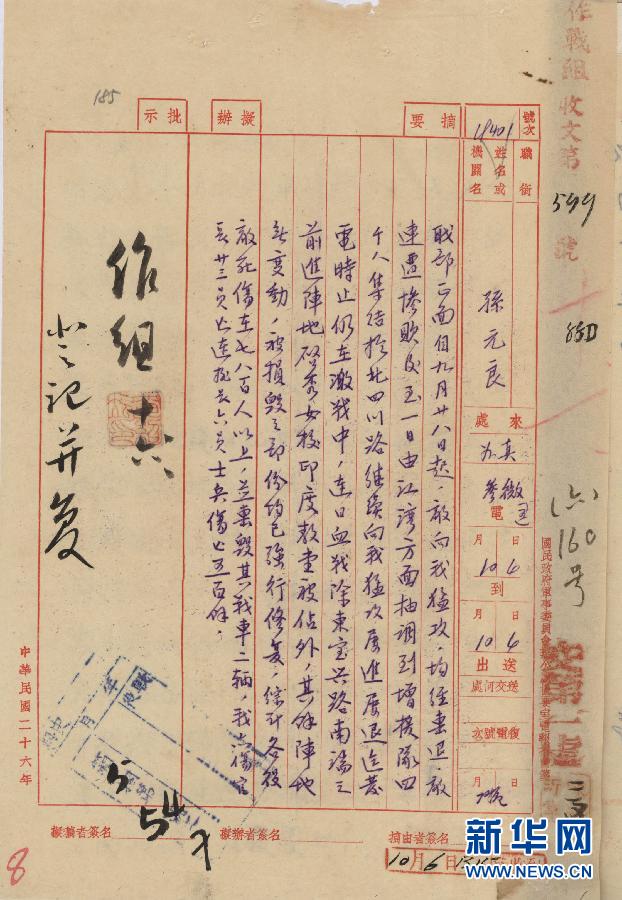 作戰組收文第
599
號
(六)160号
185
號次
14401
職銜
姓名或
機關名
孫元良
來處
電
月 日
10 6
到
月 日
10 6
送出
送交何處
復電號次
月 日
摘要
職部正面自九月廿八日起，敵向我猛攻，均經擊退，敵
連遭慘敗後至一日由江灣方面抽調到增援隊四
千人集結於北四川路繼續向我猛攻屢進屢退迄發
電時止仍在激戰中，連日血戰除東宝兴路南端之
前進陣地啓秀女校印度教堂被佔外，其餘陣地
無變動，被損毀之部份均已強行修复，綜計各役
敵死傷在七八百人以上，並擊毀其戰車二輛，我亡傷官
長廿三員亡連排長六員士兵傷亡五百餘，
擬辦
批示
作組 十六
登記并复
中華民國二十六年
擬稿者簽名
擬辦者簽名
摘由者簽名
10月6日
8
新华网
WWW.NEWS.CN